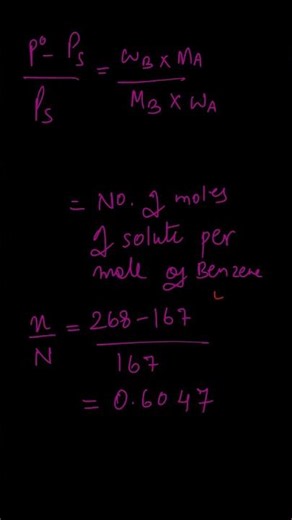 P° - Ps / Ps = WB x MA / MB x WA
= No. of moles
of solute per
mole of Benzene
n / N = 268 - 167 / 167
= 0.6047